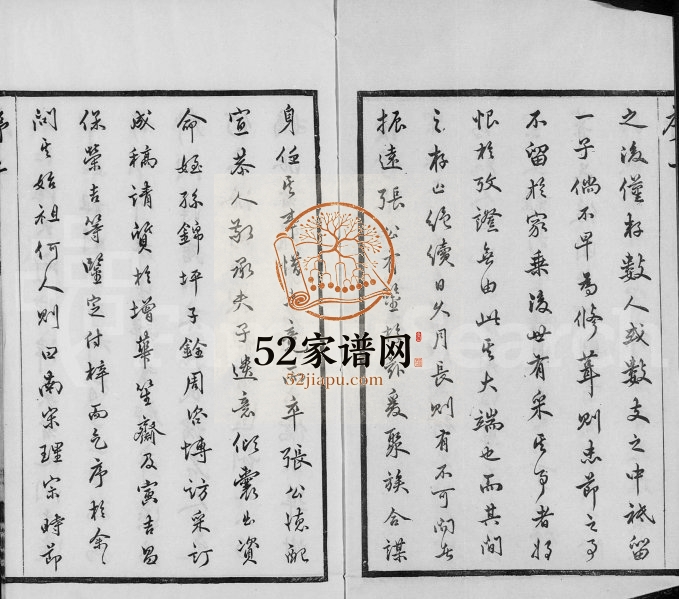 之後僅存數人或數支之中祗留
一子倘不早為修葺則忠節之事
不留於家乘後世有采其事者將
恨於攷證無由此其大端也而其間
之存亡絕續日久月長則有不可問者
振遠張公有鑒於爰聚族合謀
身任其事惜卒張公德配
宣恭人敬承夫子遺意傾囊出資
命姪孫錦坪子銓周咨博訪采訂
成稿請質於增華笙齋及寅吉昌
保榮吉等鑒定付梓而乞序於余余
問其始祖何人則曰南宋理宗時節
52家谱网
52jiapu.com